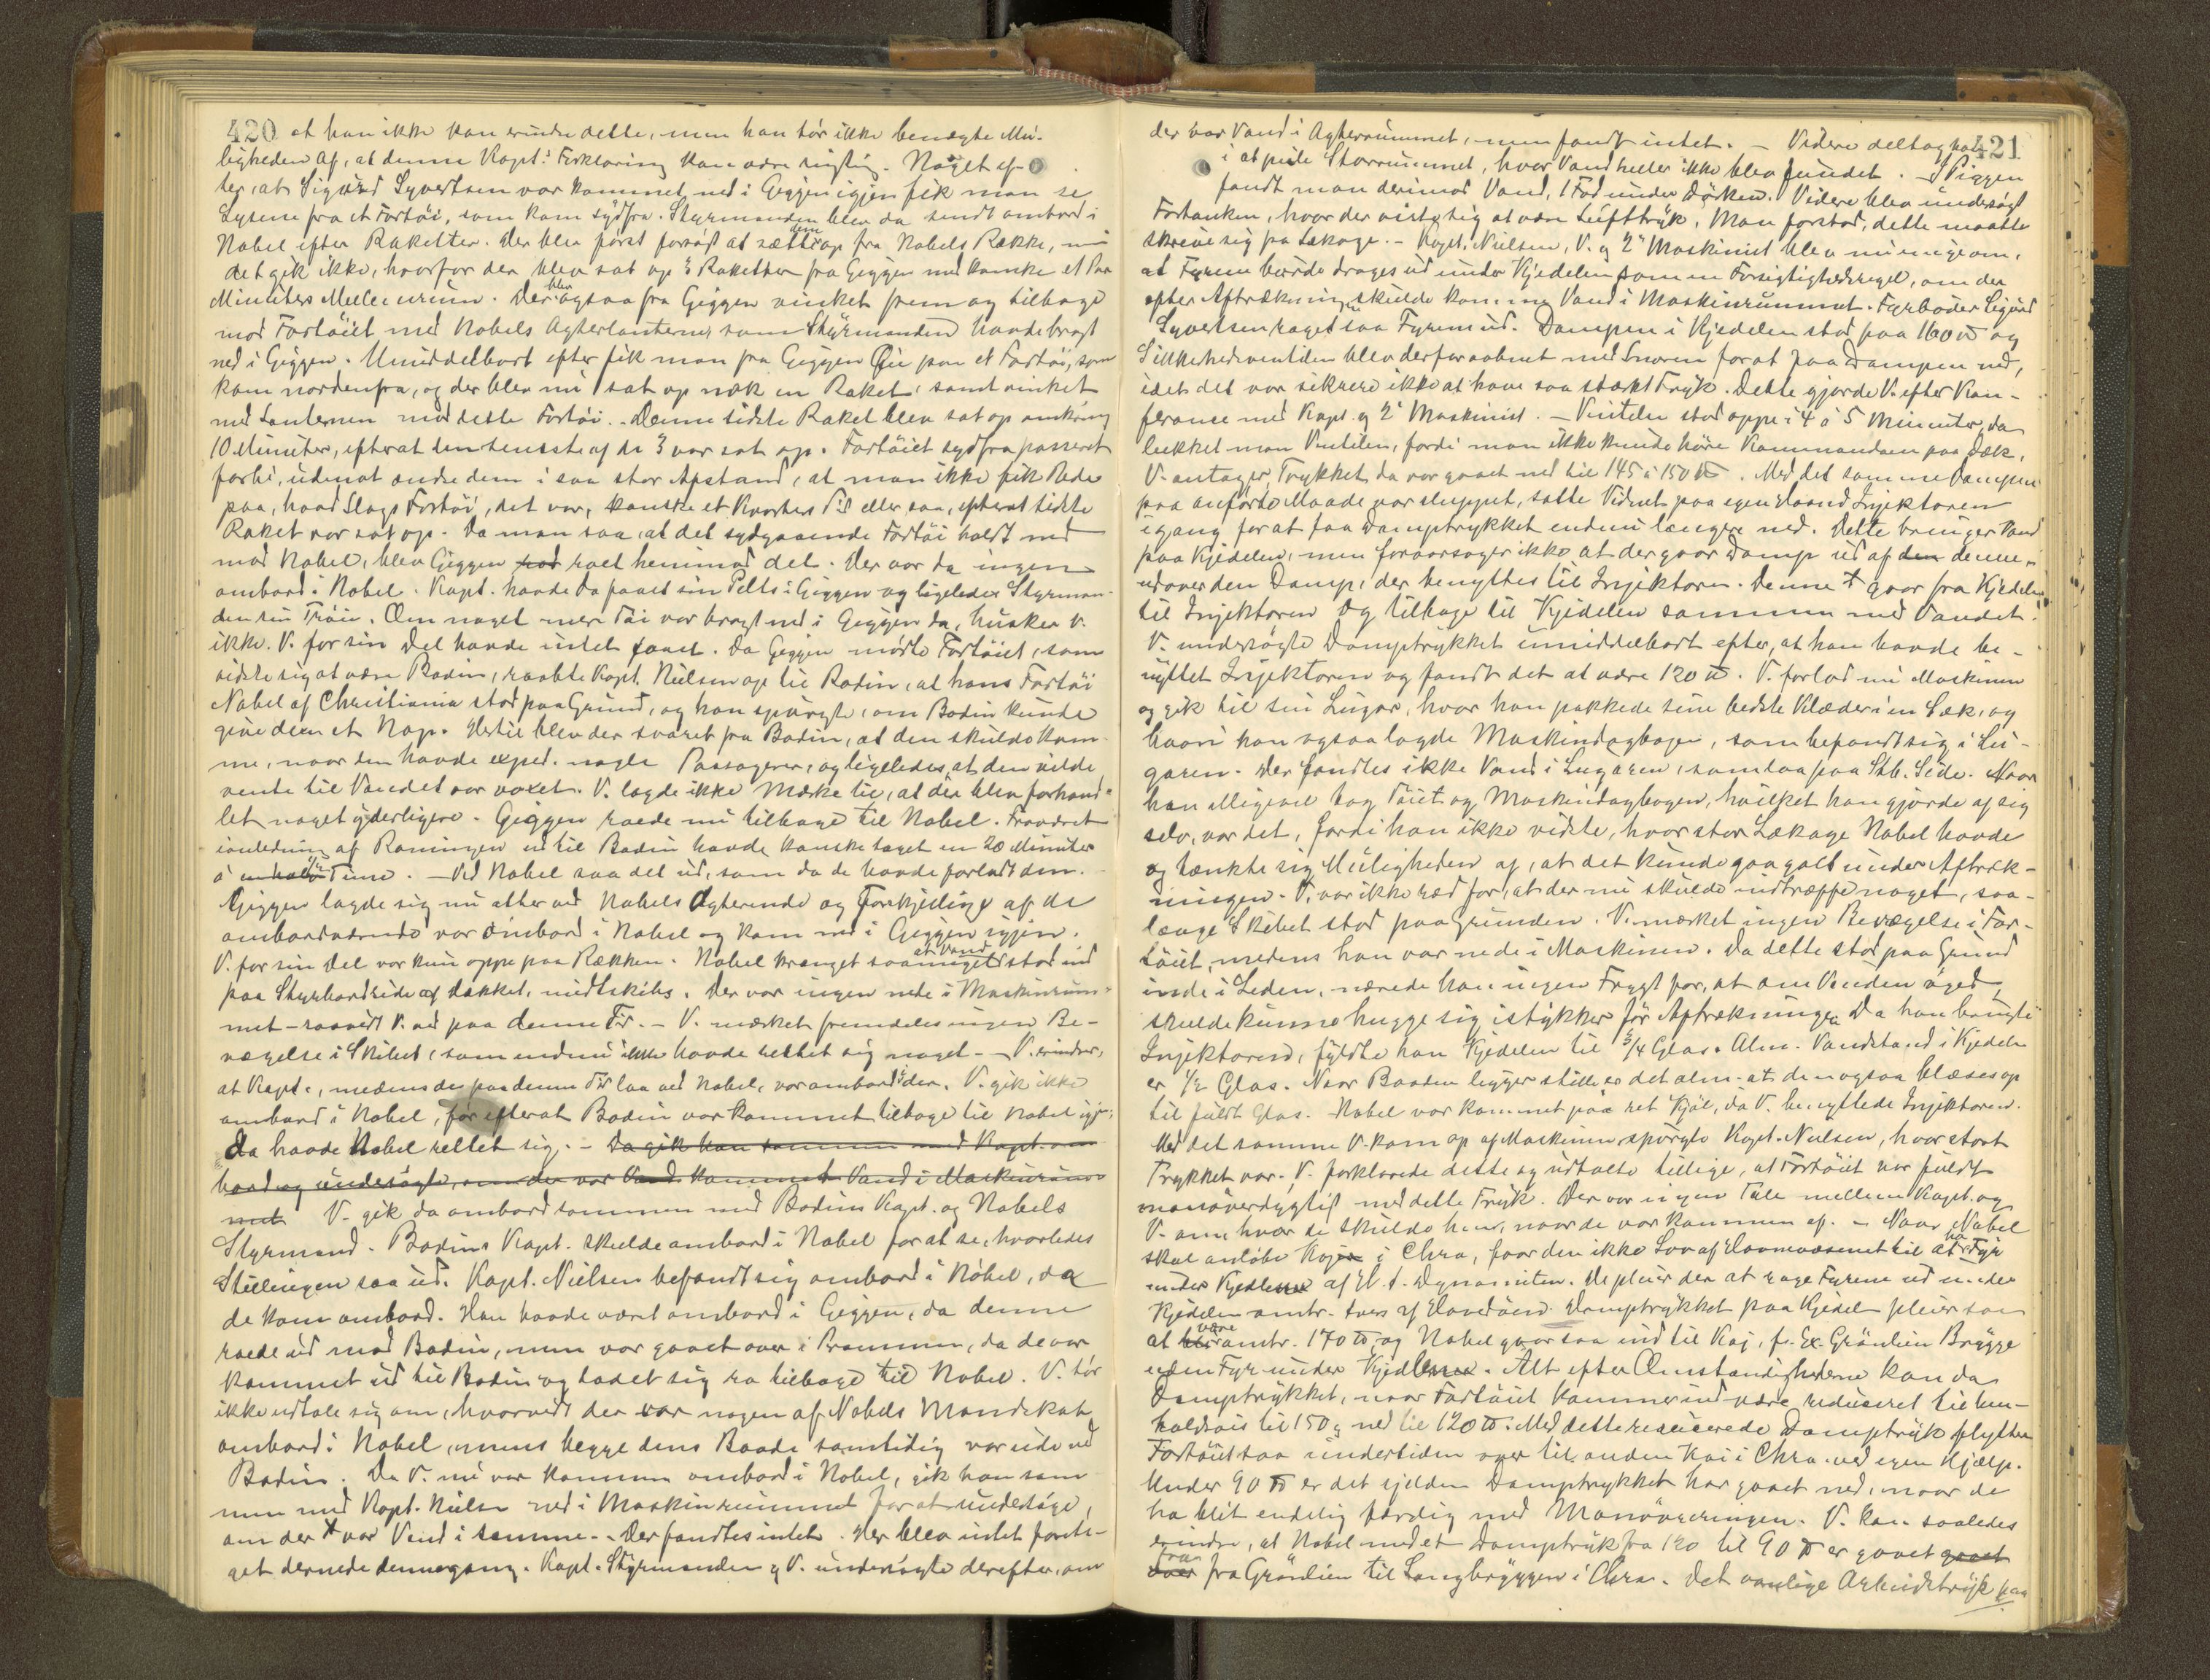 420 at han ikke kan erindre dette, men han tør ikke benægte Mu-
ligheden af, at denne Kapt.s Forklaring kan være rigtig. Noget ef-
ter, at Sigurd Syvertsen var kommet ned i Giggen igjen fik man se
Lysene fra et Fartøi, som kom sydfra. Styrmanden blev da sendt ombord i
Nobel efter Raketter. Der blev først forsøgt at sætte dem op fra Nobels Række, men
det gik ikke, hvorfor der blev sat op 3 Raketter fra Giggen med kanske et Par
Minutters Mellemrum. Der blev ogsaa fra Giggen vinket frem og tilbage
mod Fartøiet med Nobels Agterlanterne, som Styrmanden havde bragt
ned i Giggen. Umiddelbart efter fik man fra Giggen Øie paa et Fartøi, som
kom nordenfra, og der blev nu sat op nok en Raket, samt vinket
med Lanternen mod dette Fartøi. Denne sidste Raket blev sat op omkring
10 Minuter, efterat den seneste af de 3 var sat op. Fartøiet sydfra passeret
forbi, udenat ændre dem i saa stor Afstand, at man ikke fik Rede
paa, hvad Slags Fartøi, det var, kanske et Kvarters Tid eller saa, efterat sidste
Raket var sat op. Da man saa, at det sydgaaende Fartøi holdt ned
mod Nobel, blev Giggen roet henimod det. Der var da ingen
ombord i Nobel. Kapt. havde da faaet sin Pelts i Giggen og ligeledes Styrman-
den sin Trøie. Om noget mer Tøi var bragt ned i Giggen da, husker V.
ikke. V. for sin Del havde intet faaet. Da Giggen mødte Fartøiet, som
viste sig at være Bodin, raabte Kapt. Nielsen op til Bodin, at hans Fartøi
Nobel af Christiania stod paa Grund, og han spurgte, om Bodin kunde
give dem et Nap. Hertil blev der svaret fra Bodin, at den skulde kom-
me, naar den havde exped. nogle Passagerer, og ligeledes, at den vilde
vente til Vandet var voxet. V. lagde ikke Mærke til, at der blev forhand-
let noget yderligere. Giggen roede nu tilbage til Nobel. Fraværet
i anledning af Roningen ud til Bodin havde kanske taget en 20 Minuter
á en halv Time. - Ved Nobel saa det ud, som da de havde forladt den.
Giggen lagde sig nu atter ved Nobels Agterende og Forskjellige af de
ombordværende var ombord i Nobel og kom ned i Giggen igjen.
V. for sin Del var kun oppe paa Rækken. Nobel krænget saa meget at Vand stod ind
paa Styrbordside af Dækket, midtskibs. Der var ingen nede i Maskinrum-
met - saavidt V. ved paa denne Tid. - V. mærket fremdeles ingen Be-
vægelse i Skibet, som endnu ikke havde rettet sig noget. - V. erindrer,
at Kapt., medens de paa denne Tid laa ved Nobel, var ombord i den. V. gik ikke
ombord i Nobel, før efterat Bodin var kommet tilbage til Nobel igjen;
da havde Nobel rettet sig. - Da gik han sammen med Kapt. om
bord og undersøgte, om der var Vand kommet Vand i Maskinrum
met V. gik da ombord sammen med Bodins Kapt. og Nobels
Styrmand. Bodins Kapt. skulde ombord i Nobel for at se, hvorledes
Stillingen saa ud. Kapt. Nielsen befandt sig ombord i Nobel, da
de kom ombord. Han havde været ombord i Giggen, da denne
roede ud mod Bodin, men var gaaet over i Prammen, da de var
kommet ud til Bodin og ladet sig ro tilbage til Nobel. V. tør
ikke udtale sig om, hvorvidt der var nogen af Nobels Mandskab
ombord i Nobel, mens begge dens Baade samtidig var ude ved
Bodin. Da V. nu var kommen ombord i Nobel, gik han sam
men med Kapt. Nielsen ned i Maskinrummet for at undersøge,
om der var Vand i samme. - Der fandtes intet. Der blev intet foreta-
get dernede dennegang. Kapt. Styrmanden og V. undersøgte derefter, om
421
der var Vand i Agterrummet, men fandt intet. - Videre deltog han
i at peile Storrummet, hvor Vand heller ikke blev fundet. - I Piggen
fandt man derimod Vand, 1 Fod under Dørken. Videre blev undersøgt
Fortanken, hvor der viste sig at være Lufttryk. Man forstod, dette maatte
skrive sig fra Lækage. - Kapt. Nielsen, V. og 2' Maskinist blev nu enige om,
at Fyrene burde drages ud under Kjedelen som en Forsigtighedsregel, om der
efter Aftrækning skulde komme Vand i Maskinrummet. Fyrbøder Sigurd
Syvertsen raget saa Fyrene ud. Dampen i Kjedelen stod paa 160 ℔ og
Sikkerhedsventilen blev derfor aabnet med Snoren for at faa Dampen ned,
idet det var sikrere ikke at have saa stærkt Tryk. Dette gjorde V. efter Kon-
ferance med Kapt. og 2' Maskinist. - Ventilen stod oppe i 4 á 5 Minuter, da
lukket man Ventilen, fordi man ikke kunde høre Kommandoen paa Dæk.
V. antager Trykket da var gaaet ned til 145 á 150 ℔. Med det samme Dampen
paa anførte Maade var sluppet, satte Vidnet paa egen Haand Injektoren
igang for at faa Damptrykket endnu længere ned. Dette bringer Vand
paa Kjedelen, men foraarsager ikke at der gaar Damp ud af den denne,
udover den Damp, der benyttes til Injektoren. Denne gaar fra Kjedelen
til Injektoren og tilbage til Kjedelen sammen med Vandet.
V. undersøgte Damptrykket umiddelbart efter, at han havde be-
nyttet Injektoren og fandt det at være 120 ℔. V. forlod nu Maskinen
og gik til sin Lugar, hvor han pakkede sine bedste Klæder i en Sæk, og
hvori han ogsaa lagde Maskindagbogen, som befandt sig i Lu-
garen. Der fandtes ikke Vand i Lugaren, som laa paa Stb. Side. Naar
han alligevel tog Tøiet og Maskindagbogen, hvilket han gjorde af sig
selv, var det, fordi han ikke vidste, hvor stor Lækage Nobel havde
og tænkte sig Muligheden af, at det kunde gaa galt under Aftræk-
ningen. V. var ikke ræd for, at der nu skulde indtræffe noget, saa-
længe Skibet stod paa Grunden. V. mærket ingen Bevægelse i Far-
tøiet, medens han var nede i Maskinen. Da dette stod paa Grund
inde i Leden, nærede han ingen Frygt for, at om Vinden øged,
skulde kunne hugge sig istykker før Aftrækningen. Da han brugte
Injektoren, fyldte han Kjedelen til 3/4 Glas. Alm. Vandstand i Kjedelen
er 1/2 Glas. Naar Baaden ligger stille er det alm. at den ogsaa blæses op
til fuldt Glas. Nobel var kommet paa ret Kjøl, da V. benyttede Injektoren.
Med det samme V. kom op af Maskinen spurgte Kapt. Nielsen, hvor stort
Trykket var. V. forklarede dette og udtalte tillige, at Fartøiet var fuldt
manøverdygtig med dette Tryk. Der var ingen Tale mellem Kapt. og
V. om, hvor de skulde hen, naar de var kommen af. - Naar Nobel
skal anløbe Kaje i Chra, faar den ikke Lov af Havnevæsenet til at ha Fyr
under Kjedlene af H. t. Dynamiten. De pleier der at rage Fyrene ud under
Kjedelen omtr. tvers af Hovedøen. Damptrykket paa Kjedel pleier saa
at være omtr. 170 ℔, og Nobel gaar saa ind til Kaj, f. Ex. Grønlien Brygge
uden Fyr under Kjedlene. Alt efter Omstændighederne kan da
Damptrykket, naar Fartøiet kommer ind være reduseret til hen-
holdsvis til 150 og ned til 120 ℔. Med dette reducerede Damptryk flytter
Fartøiet saa undertiden over til anden Kai i Chra. ved egen Hjælp.
Under 90 ℔ er det sjelden Damptrykket har gaaet ned, naar de
ha blit endelig færdig med Manøvreringen. V. kan saaledes
erindre, at Nobel med et Damptryk fra 120 til 90 ℔ er gaaet gaaet
fra Grønlien til Langbryggen i Chra. Det vanlige Arbeidstryk paa